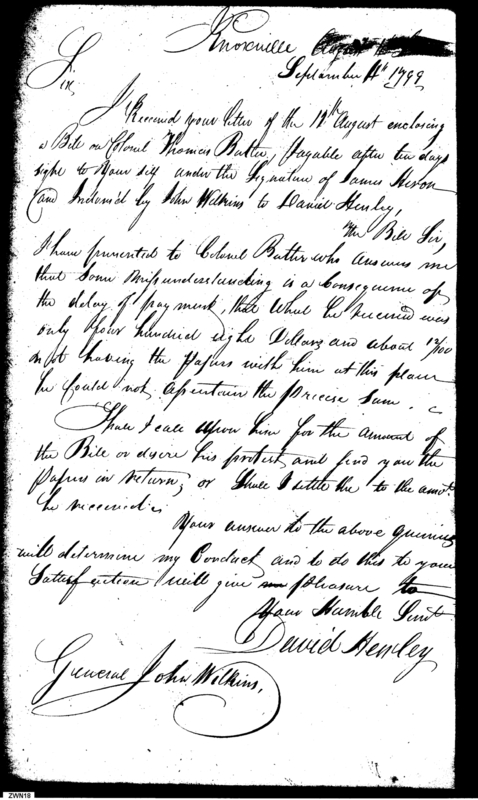 Knoxville August
September 4th 1799
Sir
I Received your letter of the 12th August enclosing
a Bill on Colonel Thomas Butler, Payable after ten days
sight to Your self under the Signature of James Heron
and Indors'd by John Wilkins to David Henley,
The Bill Sir,
I have presented to Colonel Butler who answers me
that some misunderstanding is a Consequence of
the delay of payment, that what he received was
only four hundred eight Dollars and about 12/100
not having the Papers with him at this place
he could not ascertain the Precise Sum.
Shall I call upon him for the amount of
the Bill or desire his protest and send you the
Papers in return; or Shall I settle the to the amot.
he received is
Your answer to the above Queries
will determine my Conduct and to do this to your
Satisfaction will give pleasure to
Your Humble Servt
David Henley
General John Wilkins,
ZWN18